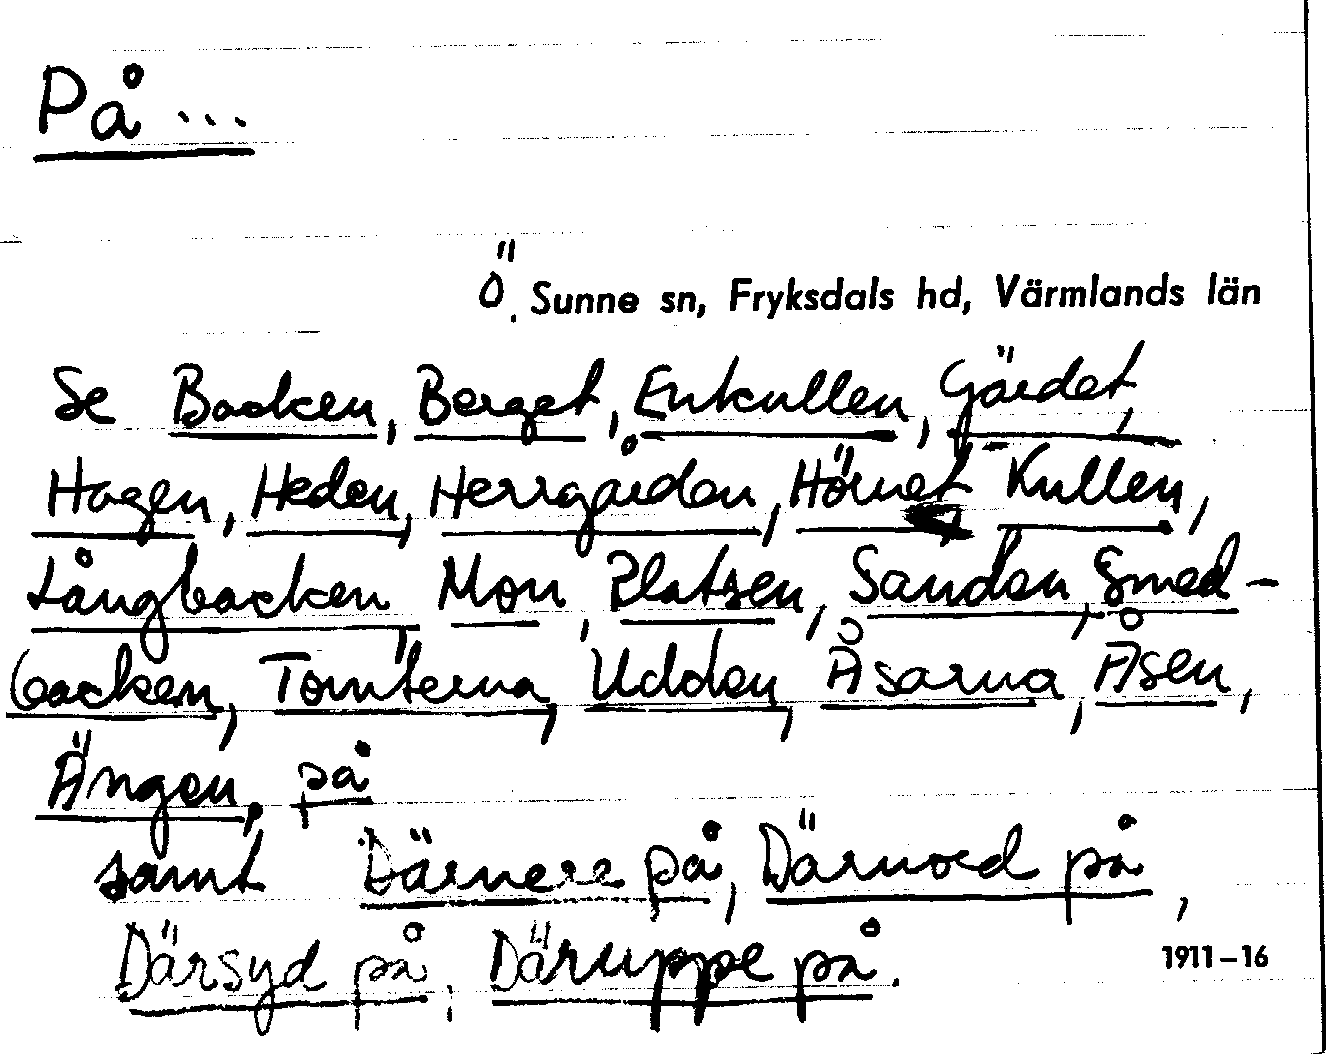 På ...
Ö. Sunne sn, Fryksdals hd, Värmlands län
Se Backen, Berget, Enkullen, Gärdet,
Hagen, Heden, Herrgården, Hörnet, Kullen,
Långbacken, Mon, Platsen, Sanden, Smed-
backen, Tomterna, Udden, Åsarna, Åsen,
Ängen, på
samt Därnere på, Därnord på,
Därsyd på, Däruppe på.
1911-16